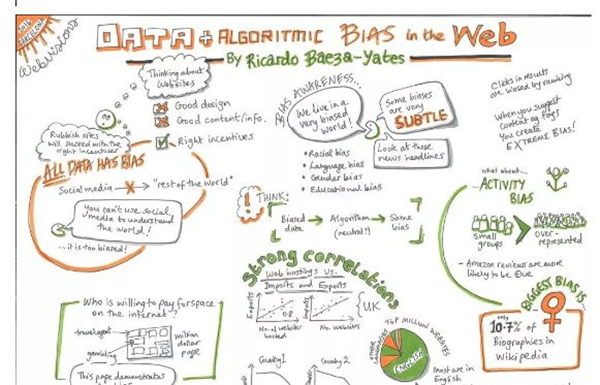 2016
BARCELONA
WebVisions
DATA + ALGORITMIC BIAS in the WEB
By Ricardo Baeza-Yates
Thinking about
Websites
Good design
Good content/info.
Right incentives
Rubbish sites
will succeed with the
right incentives
ALL DATA HAS BIAS
Social media → "rest of the world"
You can't use social
media to understand
the world!
...it is too biased!
BIAS AWARENESS...
We live in a
very biased
world!
• Racial bias
• Language bias
• Gender bias
• Educational bias
Some biases
are very
SUBTLE
Look at these
news headlines
Clicks in results
are biased by ranking
When you suggest
content or tags
You create
EXTREME BIAS!
! THINK:
Biased
data
→
Algorithm
(neutral?)
→
Same
bias
what about...
ACTIVITY
BIAS
Small
groups
→
over-
represented
- Amazon reviews are more
likely to be +ve
BIGGEST BIAS IS
only
10.7% of
Biographies in
Wikipedia
Strong correlations
Web hostings Vs.
Imports and Exports
Exports
0.8
No. of websites
hosted
Imports
No. websites
UK
MILLION WEBSITES
ENGLISH
Most are in
English
Who is willing to pay for space
on the internet?
travel agent
gambling
million
dollar
page
This page demonstrates
Country 1
Country 2